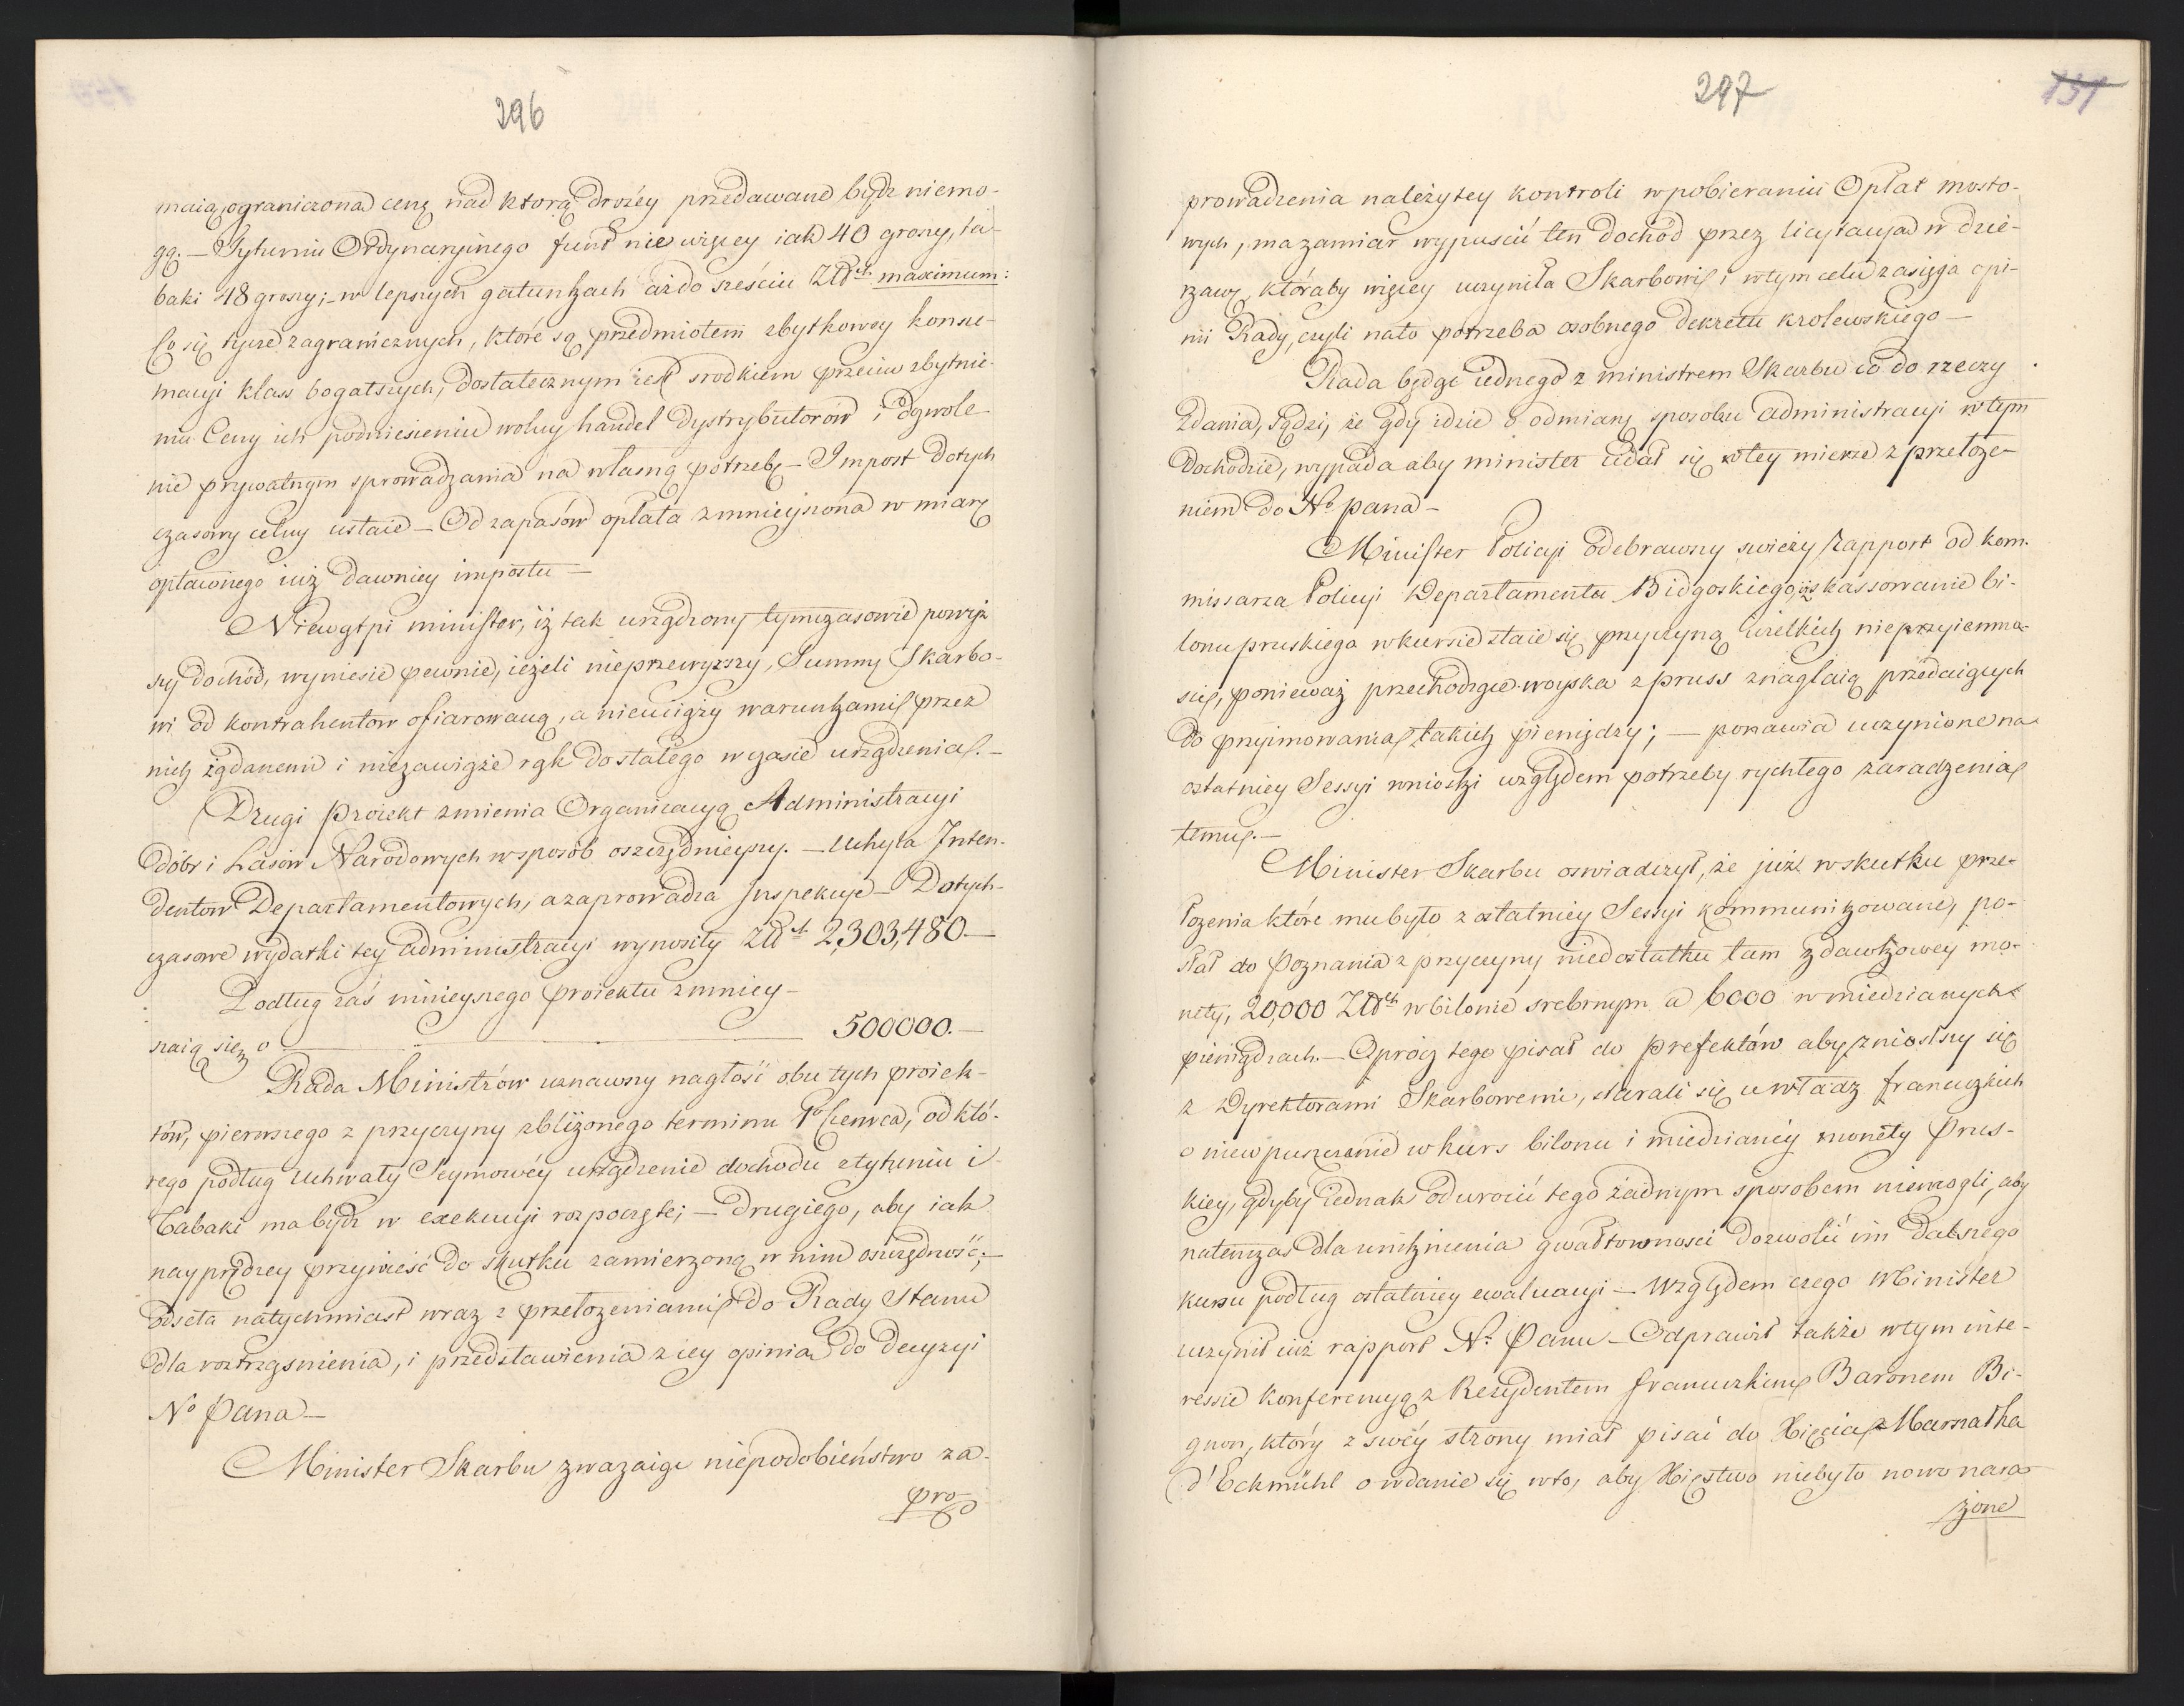 296
maią ograniczoną cenę nad ktorą drożéy przedawane bydź niemo-
gą. — Tytuniu Ordynaryinego funt nie więcey iak 40 groszy, ta-
baki 48 groszy; – w lepszych gatunkach aż do sześciu Złł. maximum:
Co się tycze zagranicznych, które są przedmiotem zbytkowey konsu-
macyi klass bogatszych, dostatecznym iest srodkiem przeciw zbytnie-
mu Ceny ich podniesieniu wolny handel Dystrybutorów i dozwole-
nie prywatnym sprowadzania na własną potrzebę – Impost dotych
czasowy celny ustaie – Od zapasów opłata zmnieyszona w miarę
opłaconego iuż dawniey impostu —
Niewątpi minister, iż tak urządzony tymczasowie powyż-
szy dochód, wyniesie pewnie, ieżeli nieprzewyższy, Summy Skarbo-
wi od kontrahentow ofiarowaną, a nieuciąży warunkami przez
nich żądanemi i niezawiąże rąk do stałego w czasie urządzenia. —
Drugi proiekt zmienia Organizacyą Administracyi
dóbr i Lasów Narodowych w sposób oszczędnieyszy. — Uchyla Inten-
dentow Departamentowych, a zaprowadza Inspekcye – Dotych-
czasowe wydatki tey administracyi wynosiły Złł. 2,303,480.—
Podług zaś ninieyszego proiektu zmniey-
szaią się o — 500000.—
Rada Ministrów uznawszy nagłość obu tych proiek-
tów, pierwszego z przyczyny zbliżonego terminu 1o Czerwca, od któ-
rego podług Uchwały Seymowéy urządzenie dochodu z tytuniu i
Tabaki ma bydź w exekucyi rozpoczęte; — drugiego, aby iak
nayprędzey przywieść do skutku zamierzoną w nim oszczędność; —
odseła natychmiast wraz z przełożeniami do Rady Stanu
dla roztrząśnienia, i przedstawienia z iey opinią do decyzyi
No Pana —
Minister Skarbu zwazaiąc niepodobieństwo za-
pro-
297
151
prowadzenia należytey kontroli w pobieraniu Opłat mosto-
wych, ma zamiar wypuścić ten dochód przez licytacyą w dzie-
rzawę, któraby więcey uczyniła Skarbowi i w tym celu zasięga opi-
nii Rady, czyli na to potrzeba osobnego dekretu krolewskiego —
Rada będąc iednego z ministrem Skarbu co do rzeczy
zdania, sądzi, że gdy idzie o odmianę sposobu administracyi w tym
dochodzie, wypada aby minister udał się w tey mierze z przełoże-
niem do No pana –
Minister Policyi odebrawszy swieży rapport od kom-
missarza Policyi Departamentu Bidgoskiego, iż skassowanie bi-
lonu pruskiego w kursie staie się przyczyną wielkich nieprzyiemno-
sci, ponieważ przechodzące woyska z pruss znaglaią przedaiących
do przyimowania takich pieniędzy; — ponawia uczynione na
ostatniey Sessyi wnioski względem potrzeby rychłego zaradzenia
temu. —
Minister Skarbu oswiadczył, że już w skutku prze-
łozenia które mu było z ostatniey Sessyi kommunikowane, po-
słał do Poznania z przyczyny niedostatku tam zdawkowey mo-
nety, 20,000 Złłch w bilonie srebrnym a 6000 w miedzianych
pieniądzach. — Oprócz tego pisał do prefektów aby zniosłszy się
z Dyrektorami Skarbowemi, starali się u władz francuzkich
o niewpuszczanie w kurs bilonu i miedzianéy monety Prus-
kiey, gdyby iednak odwrocić tego żadnym sposobem niemogli, aby
natenczas dla uniknienia gwałtowności dozwolić im dalszego
kursu podług ostatniey ewaluacyi — Względem czego Minister
uczynił iuż rapport N: Panu – Odprawił także w tym inte-
ressie konferencyą z Rezydentem francuzkim Baronem Bi-
gnon, który z swéy strony miał pisać do Xięcia Marszałka
d'Eckmühl o wdanie się w to, aby Xięstwo niebyło nowo nara-
żone